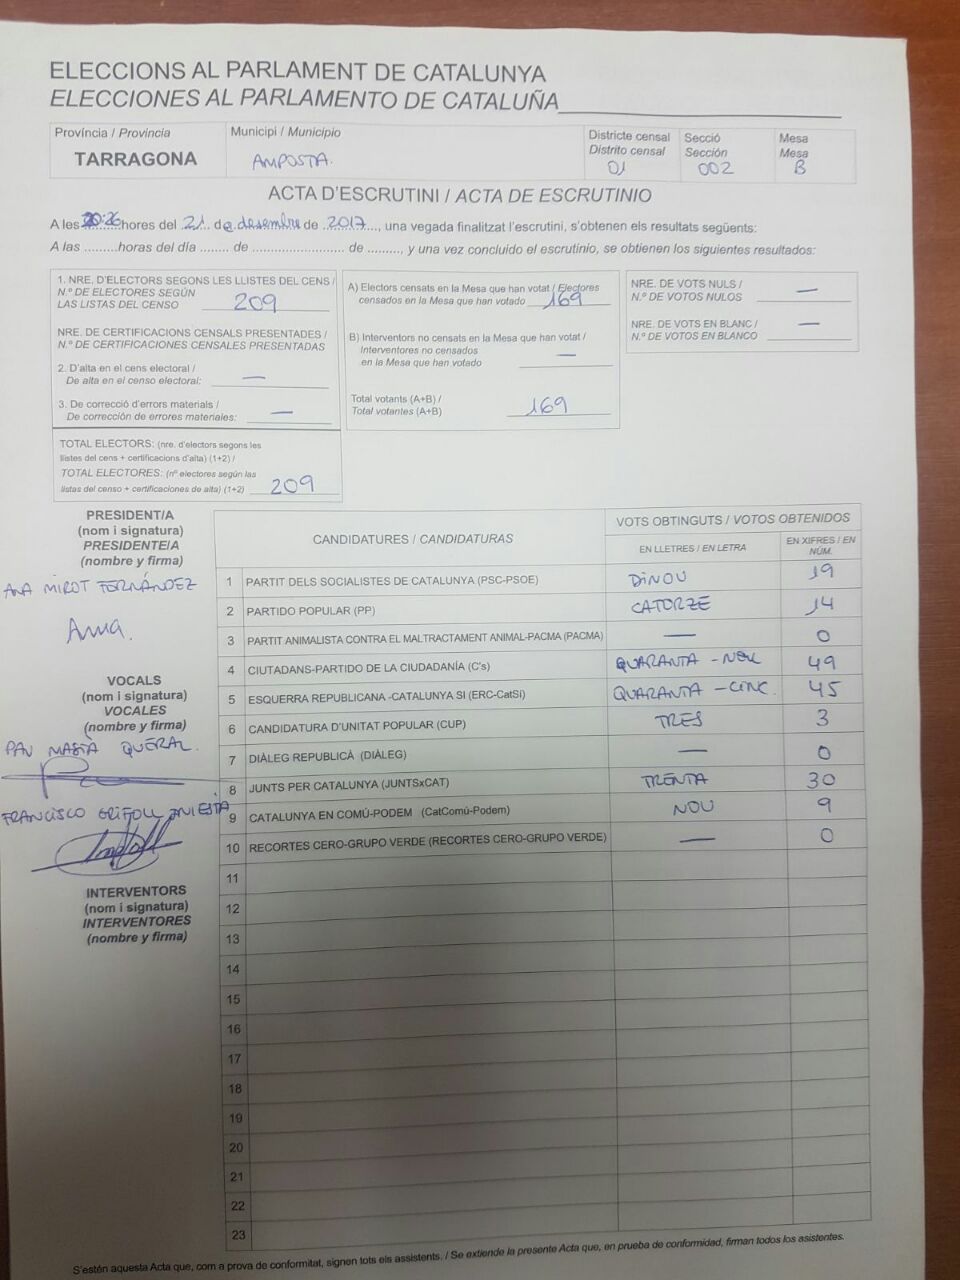 ELECCIONS AL PARLAMENT DE CATALUNYA
ELECCIONES AL PARLAMENTO DE CATALUÑA
Província / Provincia
TARRAGONA
Municipi / Municipio
AMPOSTA.
Districte censal
Distrito censal
01
Secció
Sección
002
Mesa
Mesa
B
ACTA D'ESCRUTINI / ACTA DE ESCRUTINIO
A les 20:26 hores del 21 de desembre de 2017, una vegada finalitzat l'escrutini, s'obtenen els resultats següents:
A las .........horas del día ....... de ...................... de .........., y una vez concluido el escrutinio, se obtienen los siguientes resultados:
1. NRE. D'ELECTORS SEGONS LES LLISTES DEL CENS /
N.º DE ELECTORES SEGÚN
LAS LISTAS DEL CENSO 209
NRE. DE CERTIFICACIONS CENSALS PRESENTADES /
N.º DE CERTIFICACIONES CENSALES PRESENTADAS
2. D'alta en el cens electoral /
De alta en el censo electoral: —
3. De correcció d'errors materials /
De corrección de errores materiales: —
TOTAL ELECTORS: (nre. d'electors segons les
llistes del cens + certificacions d'alta) (1+2) /
TOTAL ELECTORES: (nº electores según las
listas del censo + certificaciones de alta) (1+2) 209
A) Electors censats en la Mesa que han votat / Electores
censados en la Mesa que han votado 169
B) Interventors no censats en la Mesa que han votat /
Interventores no censados
en la Mesa que han votado —
Total votants (A+B) /
Total votantes (A+B) 169
NRE. DE VOTS NULS /
N.º DE VOTOS NULOS —
NRE. DE VOTS EN BLANC /
N.º DE VOTOS EN BLANCO —
PRESIDENT/A
(nom i signatura)
PRESIDENTE/A
(nombre y firma)
ANA MIROT FERNÁNDEZ
Anna.
VOCALS
(nom i signatura)
VOCALES
(nombre y firma)
PAU MASIÀ QUERAL.
FRANCISCO GRIFOLL INIESTA
INTERVENTORS
(nom i signatura)
INTERVENTORES
(nombre y firma)
CANDIDATURES / CANDIDATURAS
VOTS OBTINGUTS / VOTOS OBTENIDOS
EN LLETRES / EN LETRA
EN XIFRES / EN NÚM.
1 PARTIT DELS SOCIALISTES DE CATALUNYA (PSC-PSOE) DINOU 19
2 PARTIDO POPULAR (PP) CATORZE 14
3 PARTIT ANIMALISTA CONTRA EL MALTRACTAMENT ANIMAL-PACMA (PACMA) — 0
4 CIUTADANS-PARTIDO DE LA CIUDADANÍA (C's) QUARANTA - NOU 49
5 ESQUERRA REPUBLICANA -CATALUNYA SI (ERC-CatSí) QUARANTA - CINC. 45
6 CANDIDATURA D'UNITAT POPULAR (CUP) TRES 3
7 DIÀLEG REPUBLICÀ (DIÀLEG) — 0
8 JUNTS PER CATALUNYA (JUNTSxCAT) TRENTA 30
9 CATALUNYA EN COMÚ-PODEM (CatComú-Podem) NOU 9
10 RECORTES CERO-GRUPO VERDE (RECORTES CERO-GRUPO VERDE) — 0
11
12
13
14
15
16
17
18
19
20
21
22
23
S'estén aquesta Acta que, com a prova de conformitat, signen tots els assistents. / Se extiende la presente Acta que, en prueba de conformidad, firman todos los asistentes.